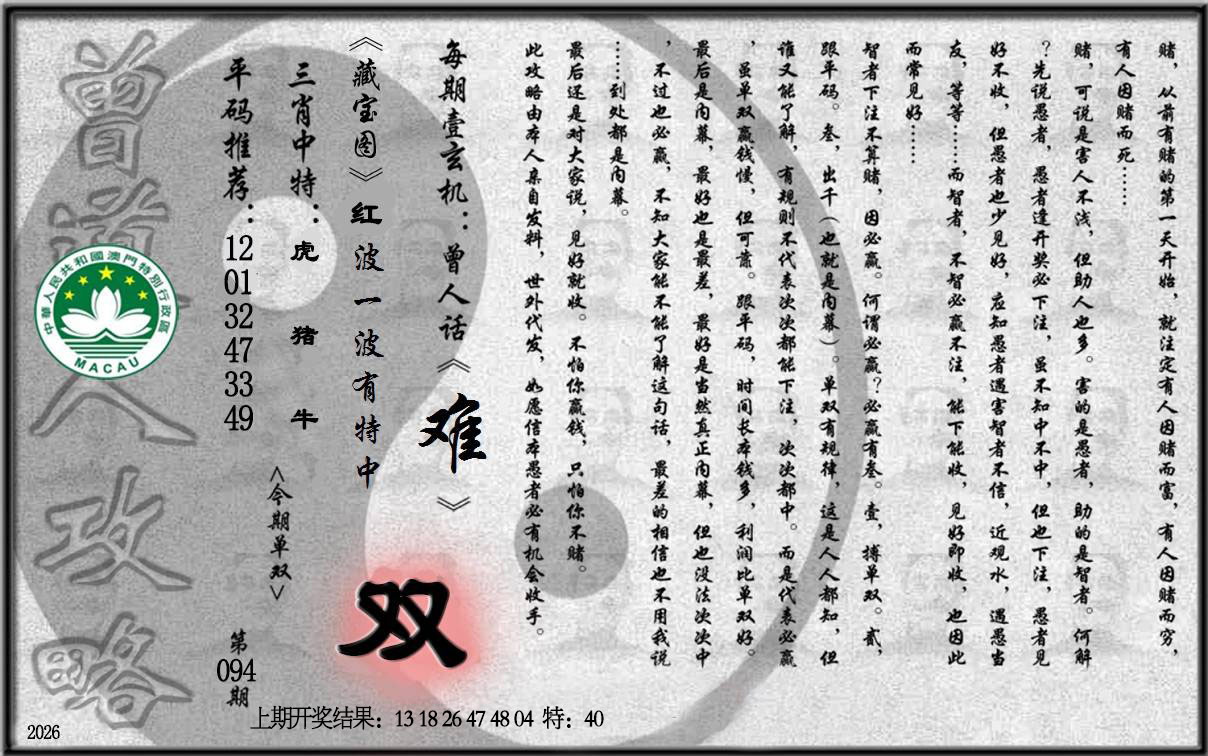 赌，从前有赌的第一天开始，就注定有人因赌而富，有人因赌而穷，
有人因赌而死……
赌，可说是害人不浅，但助人也多。害的是愚者，助的是智者。何解
？先说愚者，愚者逢开奖必下注，虽不知中不中，但也下注，愚者见
好不收，但愚者也少见好，应知愚者遇害智者不信，近观水，遇愚当
友，等等……而智者，不智必赢不注，能下能收，见好即收，也因此
而常见好……
智者下注不算赌，因必赢。何谓必赢？必赢有叁。壹，搏单双。贰，
跟平码。叁，出千（也就是内幕）。单双有规律，这是人人都知，但
谁又能了解，有规则不代表次次都能下注，次次都中。而是代表必赢
，虽单双赢钱慢，但可靠。跟平码，时间长本钱多，利润比单双好。
最后是内幕，最好也是最差，最好是当然真正内幕，但也没法次次中
，不过也必赢，不知大家能不能了解这句话，最差的相信也不用我说
……到处都是内幕。
最后还是对大家说，见好就收。不怕你赢钱，只怕你不赌。
此攻略由本人亲自发料，世外代发，如愿信本愚者必有机会收手。
每期壹玄机：曾人话《难》
《藏宝图》红波一波有特中
双
三肖中特：虎 猪 牛
<今期单双>
平码推荐：12 01 32 47 33 49
第094期
曾道人攻略
中華人民共和國澳門特別行政區
MACAU
上期开奖结果：13 18 26 47 48 04 特：40
2026